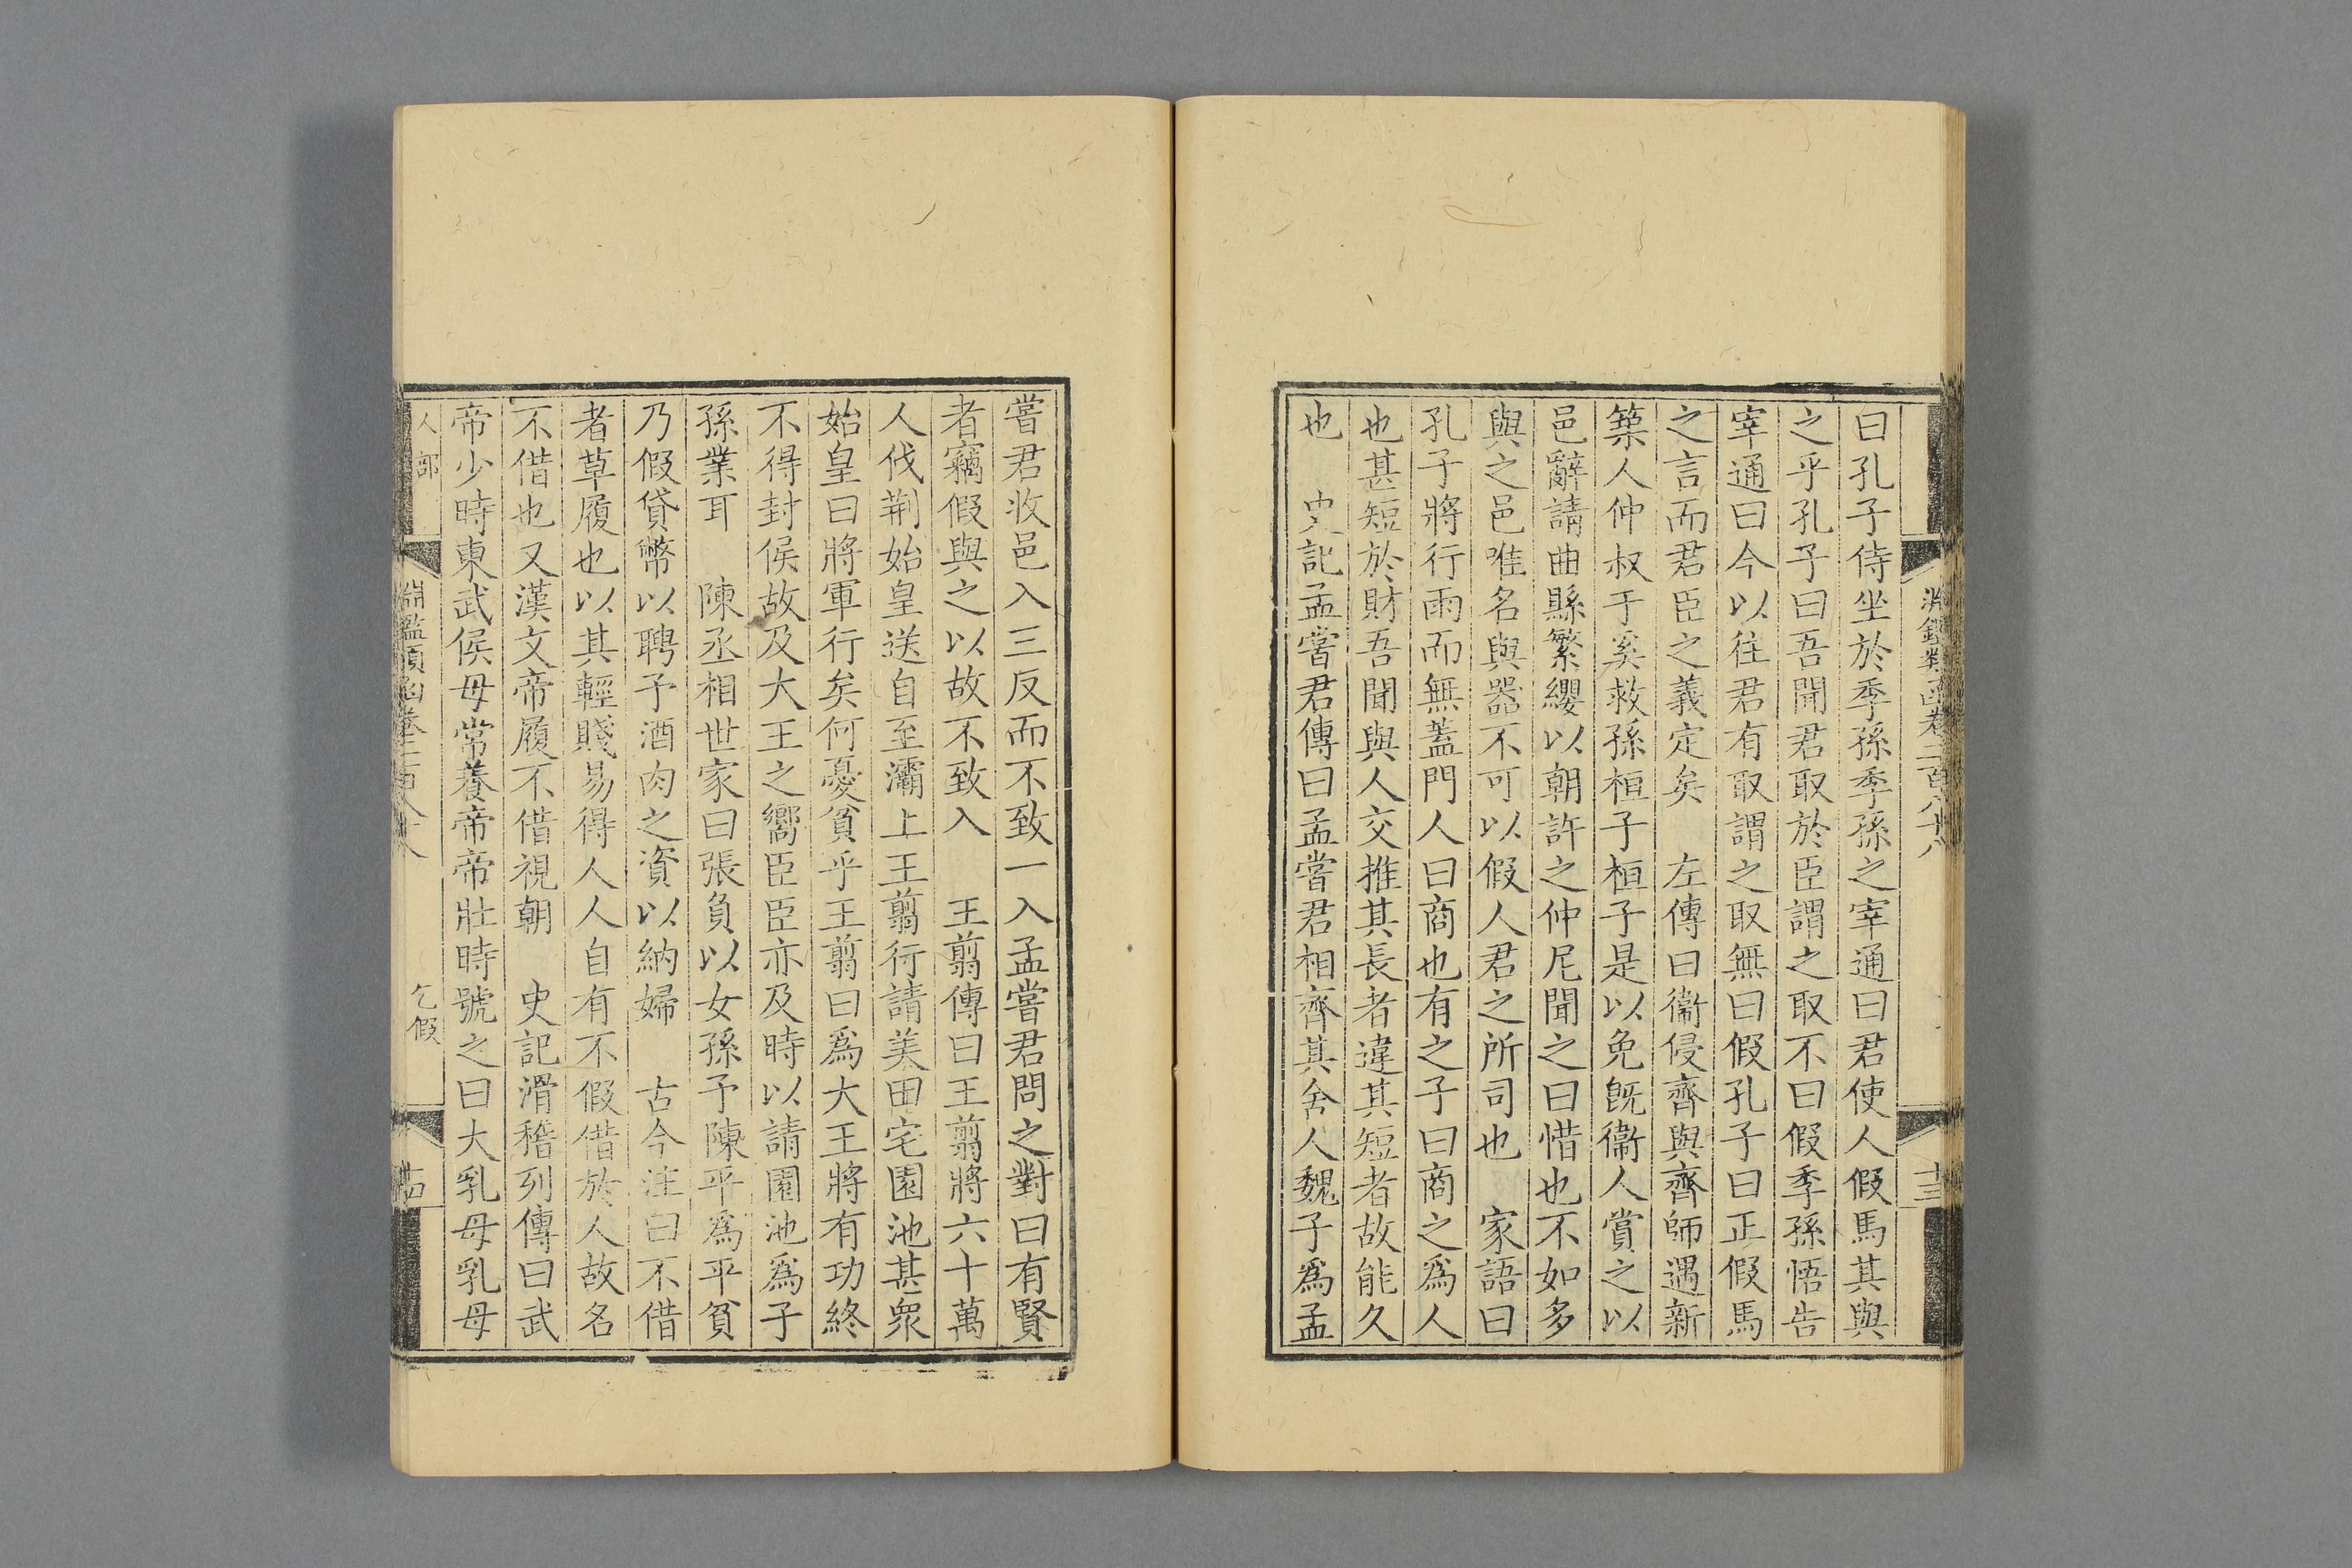 淵鑑類函卷二百八十八
十三
曰孔子侍坐於季孫季孫之宰通曰君使人假馬其與
之乎孔子曰吾聞君取於臣謂之取不曰假季孫悟告
宰通曰今以往君有取謂之取無曰假孔子曰正假馬
之言而君臣之義定矣　左傳曰衞侵齊與齊師遇新
築人仲叔于奚救孫桓子桓子是以免旣衞人賞之以
邑辭請曲縣繁纓以朝許之仲尼聞之曰惜也不如多
與之邑唯名與器不可以假人君之所司也　家語曰
孔子將行雨而無蓋門人曰商也有之子曰商之爲人
也甚短於財吾聞與人交推其長者違其短者故能久
也　史記孟嘗君傳曰孟嘗君相齊其舍人魏子爲孟
嘗君收邑入三反而不致一入孟嘗君問之對曰有賢
者竊假與之以故不致入　王翦傳曰王翦將六十萬
人伐荆始皇送自至灞上王翦行請美田宅園池甚衆
始皇曰將軍行矣何憂貧乎王翦曰爲大王將有功終
不得封侯故及大王之嚮臣臣亦及時以請園池爲子
孫業耳　陳丞相世家曰張負以女孫予陳平爲平貧
乃假貸幣以聘予酒肉之資以納婦　古今注曰不借
者草履也以其輕賤易得人人自有不假借於人故名
不借也又漢文帝履不借視朝　史記滑稽列傳曰武
帝少時東武侯母常養帝帝壯時號之曰大乳母乳母
人部
淵鑑類函卷二百八十八
乞假
十四